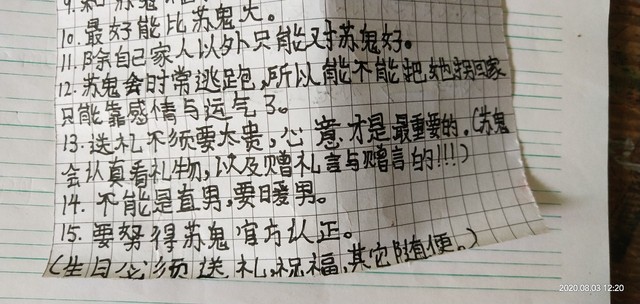 10. 最好能比苏鬼大。
11. 除自己家人以外只能对苏鬼好。
12. 苏鬼会时常逃跑,所以能不能把她拐回家
只能靠感情与运气了。
13. 送礼不须要太贵,心意才是最重要的.(苏鬼
会认真看礼物,以及赠礼言与赠言的!!!)
14. 不能是直男,要暖男。
15. 要努得苏鬼官方认正。
(生日必须送礼,祝福,其它随便。)
2020.08.03 12:20